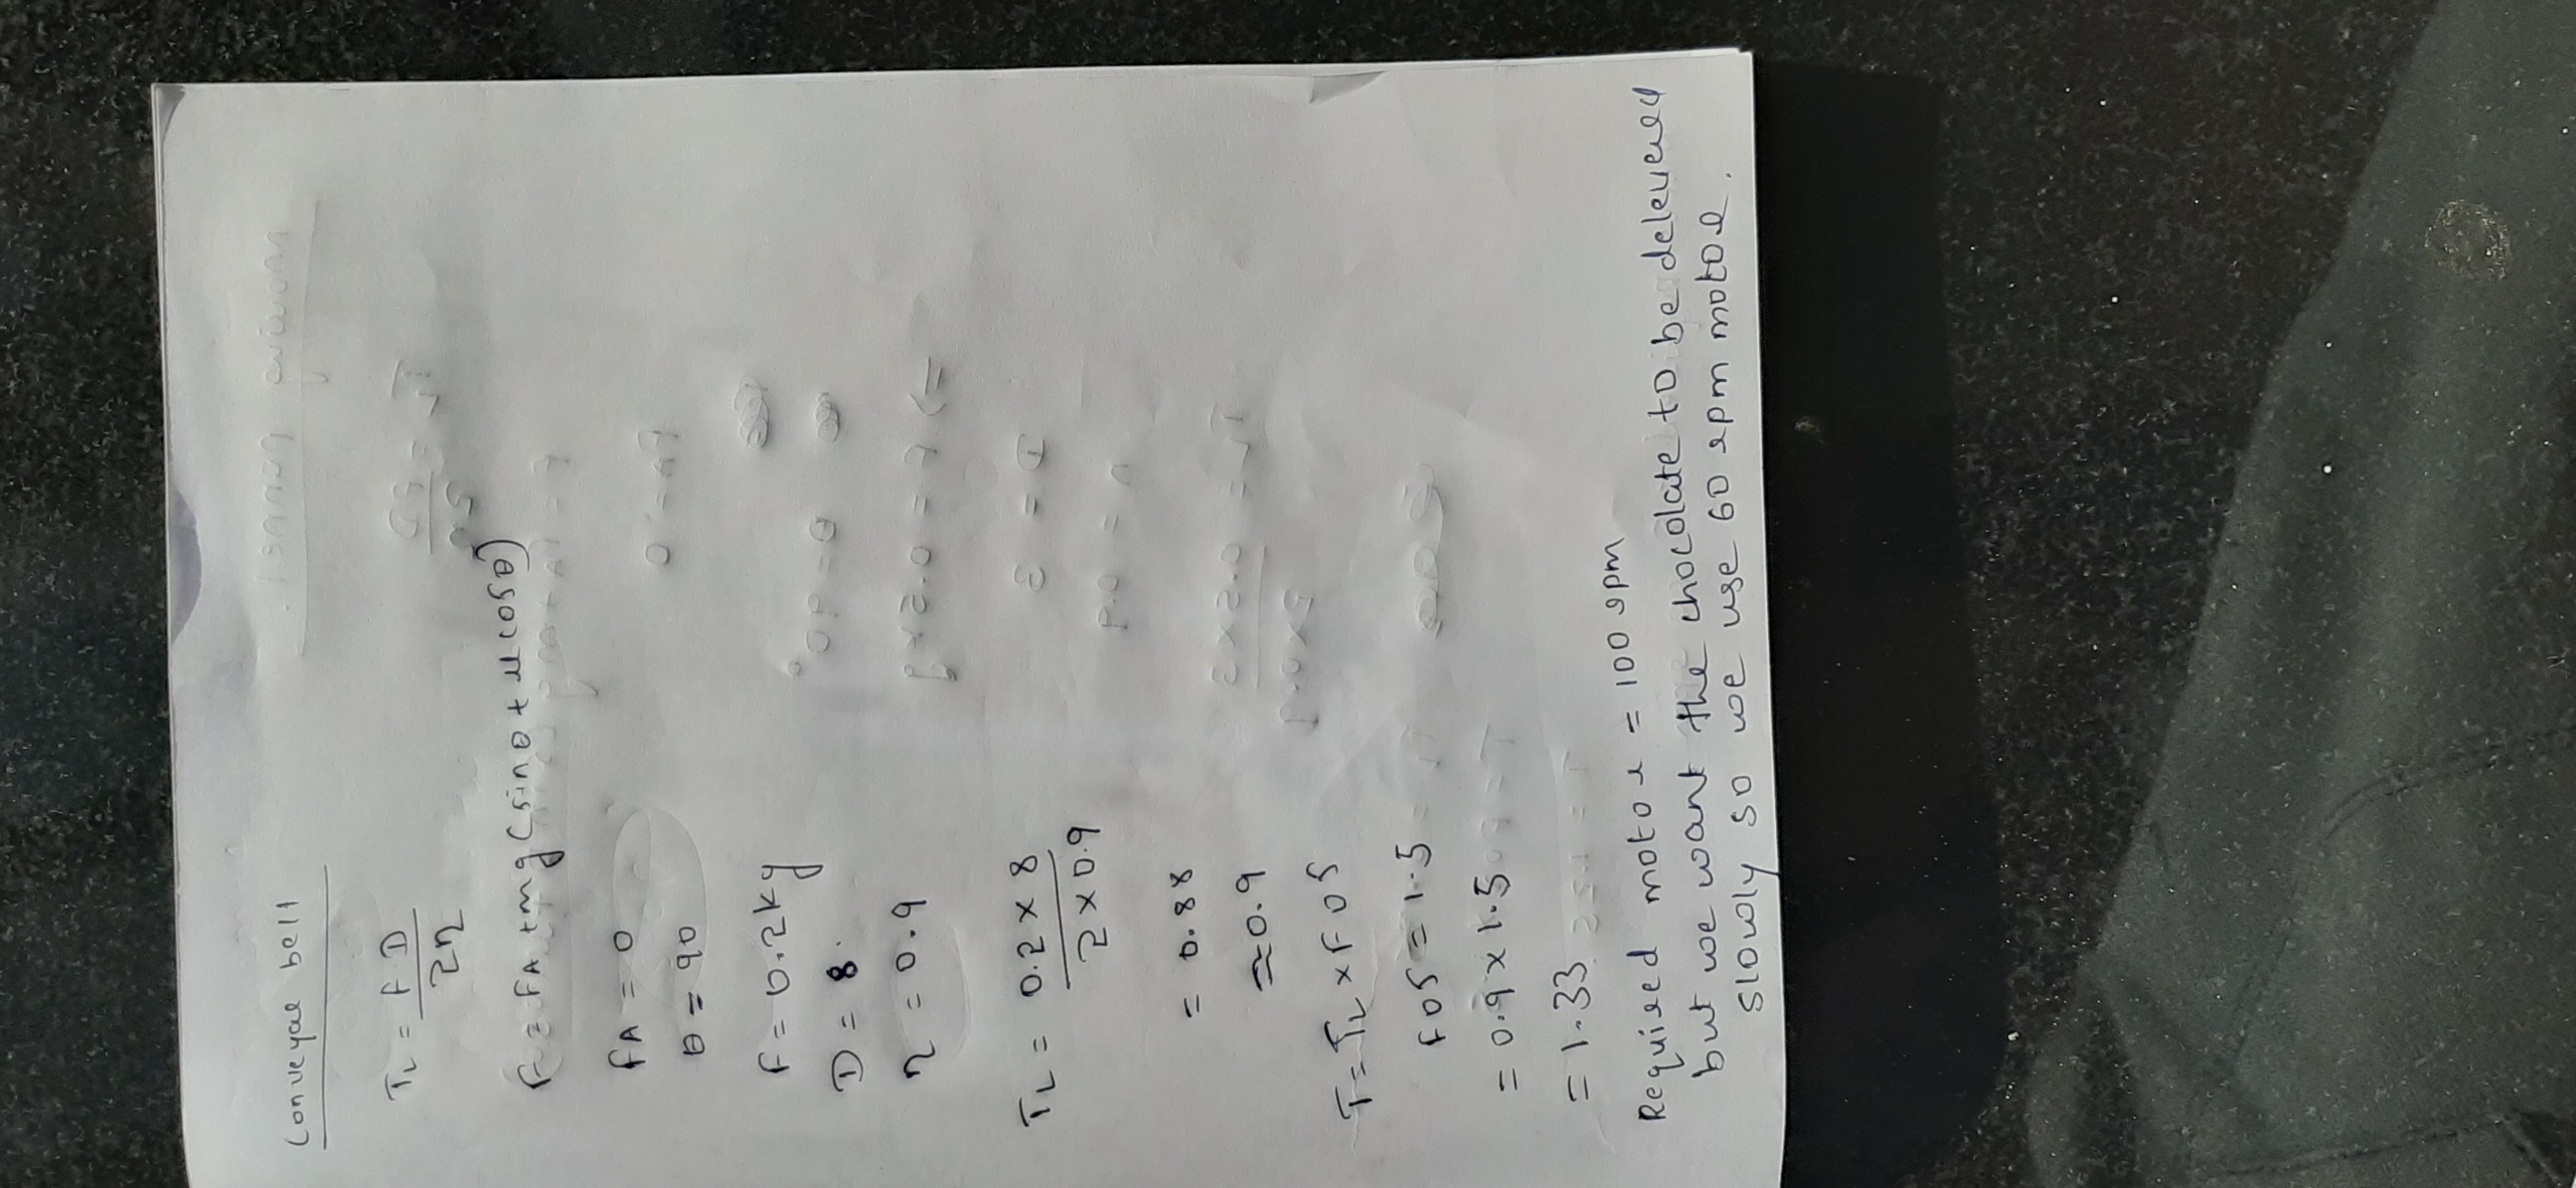 Conveyor belt
TL = F D
2η
F = FA + mg (sinθ + μ cosθ)
FA = 0
θ = 90
F = 0.2kg
D = 8
η = 0.9
TL = 0.2 × 8
2 × 0.9
= 0.88
≃ 0.9
T = TL × FOS
FOS = 1.5
= 0.9 × 1.5
= 1.33
Required motor = 100 rpm
but we want the chocolate to be delevered
slowly so we use 60 rpm motor.